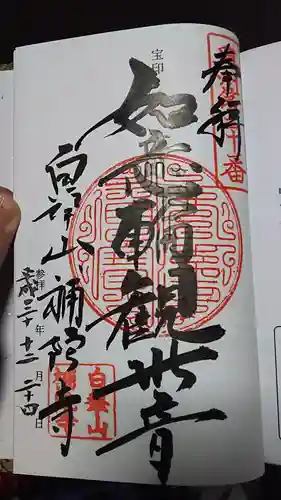 奉拝
宝印
如意輪観世音
白華山補陀寺
参拝
平成三十年十二月二十四日
白華山
補陀寺